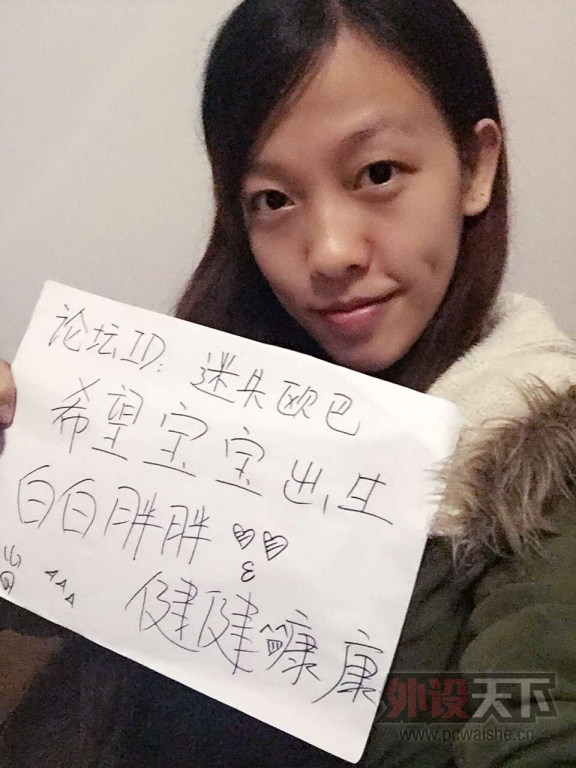 论坛ID: 迷失欧巴
希望宝宝出生
白白胖胖
健健康康
外设天下
www.pcwaishe.cn